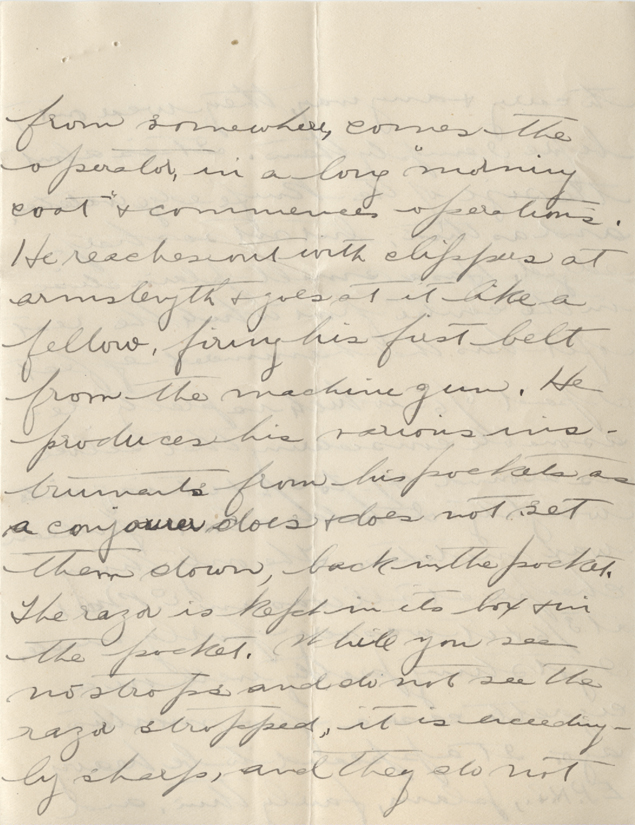 from somewhere, comes the
operator, in a long "morning
coat" & commences operations.
He reaches out with clippers at
armslength & goes at it like a
fellow, firing his first belt
from the machine gun. He
produces his various ins-
truments from his pockets as
a conjourer does & does not set
them down, back in the pocket.
The razor is kept in its box & in
the pocket. While you see
no strops and do not see the
razor stropped, it is exceeding-
ly sharp, and they do not